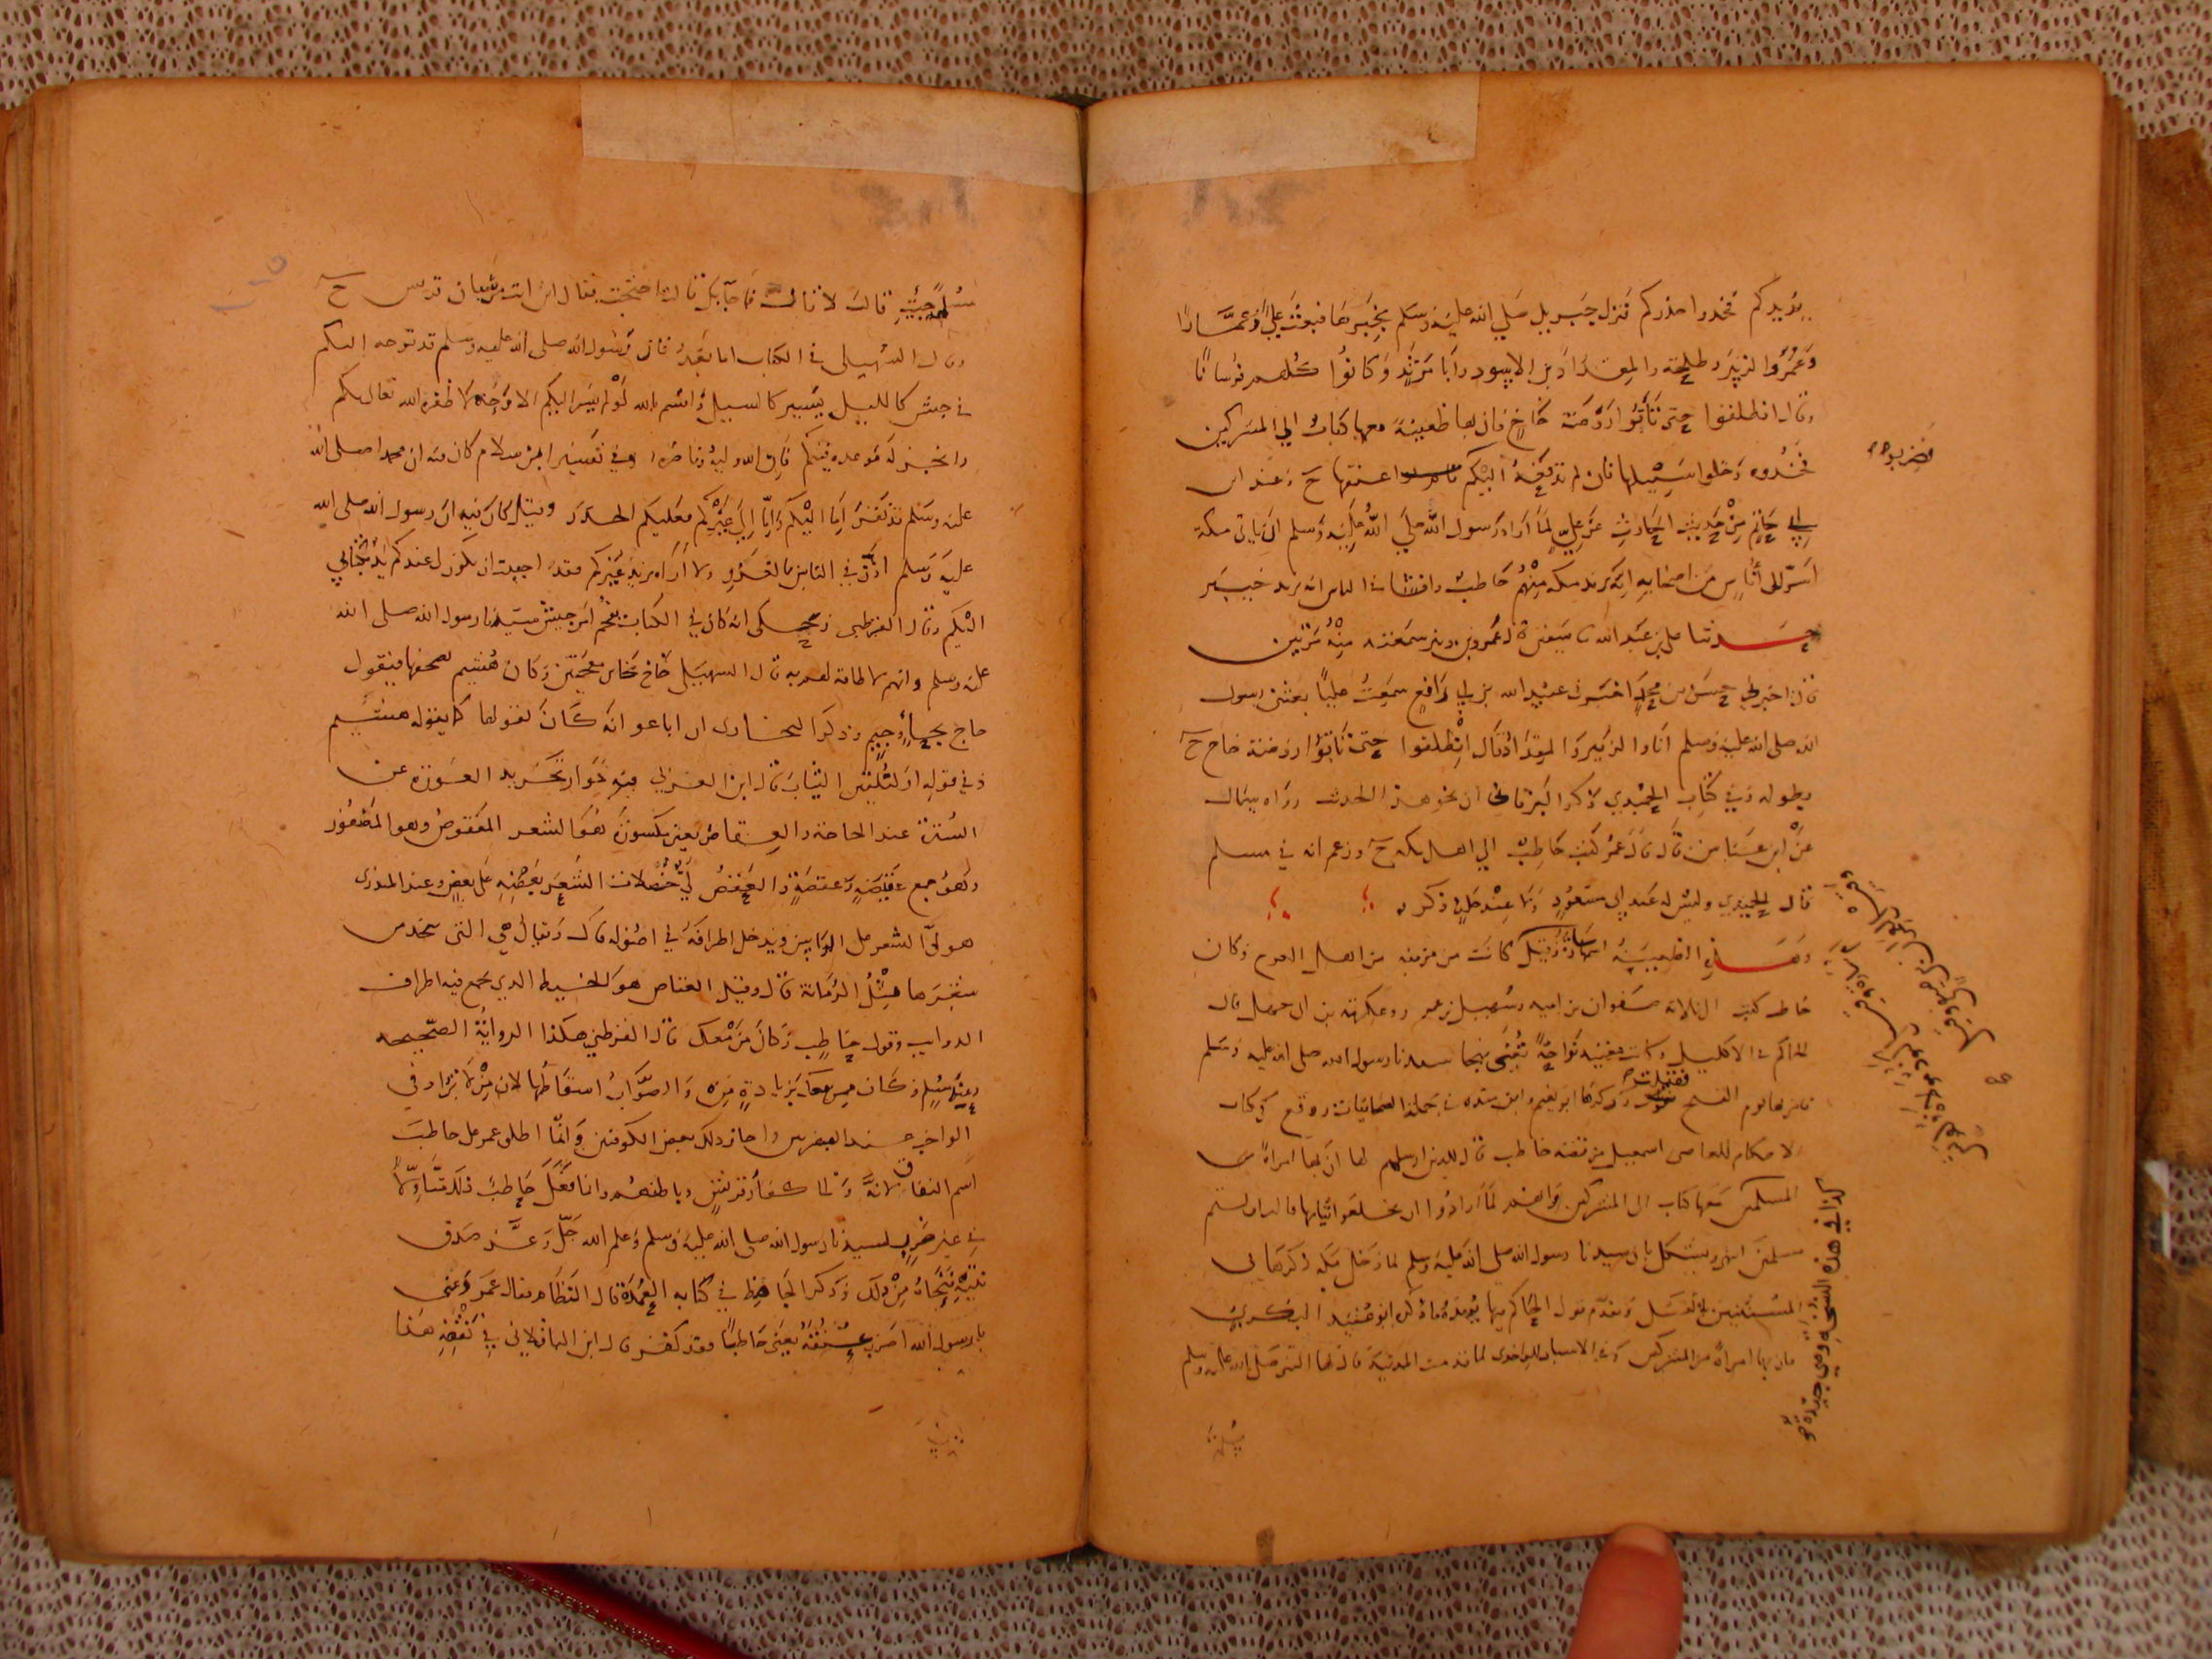 يريدكم فخذوا حذركم فنزل جبريل صلي الله عليه وسلم بخبرها فبعث عليا وعمارا
وعمر والزبير وطلحة والمقداد بن الاسود وابا مرثد وكانوا كلهم فرسانا
وقال انطلقوا حتى تأتوا روضة خاخ فان بها ظعينة معها كتاب الي المشركين
فخذوه وخلوا سبيلها فان لم تدفعه اليكم فاضربوا عنقها ح وعند ابن
ابي حاتم من حديث الحارث عن علي لما اراد رسول الله صلي الله عليه وسلم ان ياتي مكة
اسر الى أناس من اصحابه انه يريد مكة منهم حاطب وافشا في الناس انه يريد خيبر
حدثنا علي بن عبد الله نا سفين نا عمرو بن دينر سمعته منه مرتين
قال اخبرني حسن بن محمد اخبرني عبيد الله بن ابي رافع سمعت عليا بعثني رسول
الله صلى الله عليه وسلم انا والزبير والمقداد وقال انطلقوا حتى تأتوا روضة خاخ ح
بطوله وفي كتاب الحميدي ذكر البرقاني ان نحو هذا الحديث رواه سماك
عن ابن عباس قال قال عمر كتب حاطب الي اهل مكة ح وزعم انه في مسلم
قال الحميدي وليس له عند ابي مسعود ولا عند خلف ذكر
وهذه الظعينة اسمها سارة وقيل كانت من مزينة من اهل العرج وكان
حاطب كتب الى ثلاثة صفوان بن امية وسهيل بن عمرو وعكرمة بن ابي جهل قال
الحاكم في الاكليل وكانت مغنية نواحة تغني بهجا سيدنا رسول الله صلى الله عليه وسلم
فامر بها يوم الفتح فقتلت وذكرها ابو نعيم وابن منده في جملة الصحابيات ووقع في كتاب
الاحكام للقاضي اسمعيل في قصة حاطب قال للذين ارسلهم لها ان بها امراة من
المسلمين معها كتاب الى المشركين وانهم لما ارادوا ان يخلعوا ثيابها قالت اولستم
مسلمين انتهى ويشكل بان سيدنا رسول الله صلى الله عليه وسلم لما دخل مكة ذكرها في
المستثنين بالقتل وتقدم قول الحاكم فيها يؤيده ما ذكر ابو عبيد البكري
فان بها امراة من المشركين وفي الاسباب للواحدي لما قدمت المدينة قال لها النبي صلى الله عليه وسلم
فاضربوا
كذا في هذه النسخة وهي جيدة
مسلمة جئت قالت لا قال فما جاء بك قالت احتجت فقال اين انت من شبان قريش ح
وقال السهيلي في الكتاب اما بعد فان رسول الله صلى الله عليه وسلم قد توجه اليكم
في جيش كالليل يسير كالسيل واقسم بالله لو لم يسر اليكم الا وحده لاظفره الله تعالى بكم
وانجز له موعده فيكم فان الله وليه وناصره وفي تفسير ابن سلام كان فيه ان محمدا صلى الله
عليه وسلم قد نفر اما اليكم واما الى غيركم فعليكم الحذر وقيل كان فيه ان رسول الله صلى الله
عليه وسلم اذن في الناس بالغزو ولا اراه يريد غيركم فقد احببت ان يكون لي عندكم يد بكتابي
اليكم وقال القرطبي وحكى انه كان في الكتاب يفخم امر جيش سيدنا رسول الله صلى الله
عليه وسلم وانهم لا طاقة لهم به قال السهيلي خاخ بخاين معجمتين وكان هشيم يصحفها فيقول
حاج بحاء وجيم وذكر البخاري ان ابا عوانة كان يقولها كما يقوله هشيم
وفي قوله او لتلقين الثياب قال ابن العربي فيه جواز تجريد العورة عن
السترة عند الحاجة والعقاص بعين مكسورة هو الشعر المعقوص وهو المضفور
وهو جمع عقيصة وعقصة والعقص لي خصلات الشعر بعضه على بعض وعند المنذري
هو لي الشعر على الراس ويدخل اطرافه في اصوله قال ويقال هي التي تتخذ من
شعرها مثل الرمانة قال وقيل العقاص هو الخيط الذي يجمع فيه اطراف
الذوايب وقول حاطب وكان من معك قال القرطبي هكذا الرواية الصحيحة
وعند مسلم وكان ممن معك بزيادة من والصواب اسقاطها لان من لا تزاد في
الواجب عند البصريين واجاز ذلك بعض الكوفيين وانما اطلق عمر على حاطب
اسم النفاق لانه والى كفار قريش وباطنهم وانما فعل حاطب ذلك متاولا
في غير ضرر لسيدنا رسول الله صلى الله عليه وسلم وعلم الله جل وعز صدق
نيته فنجاه من ذلك وذكر الجاحظ في كتابه العمدة قال النظام فقال عمر دعني
يا رسول الله اضرب عنقه يعني حاطبا فقد كفر قال ابن الباقلاني في نقضه هذا